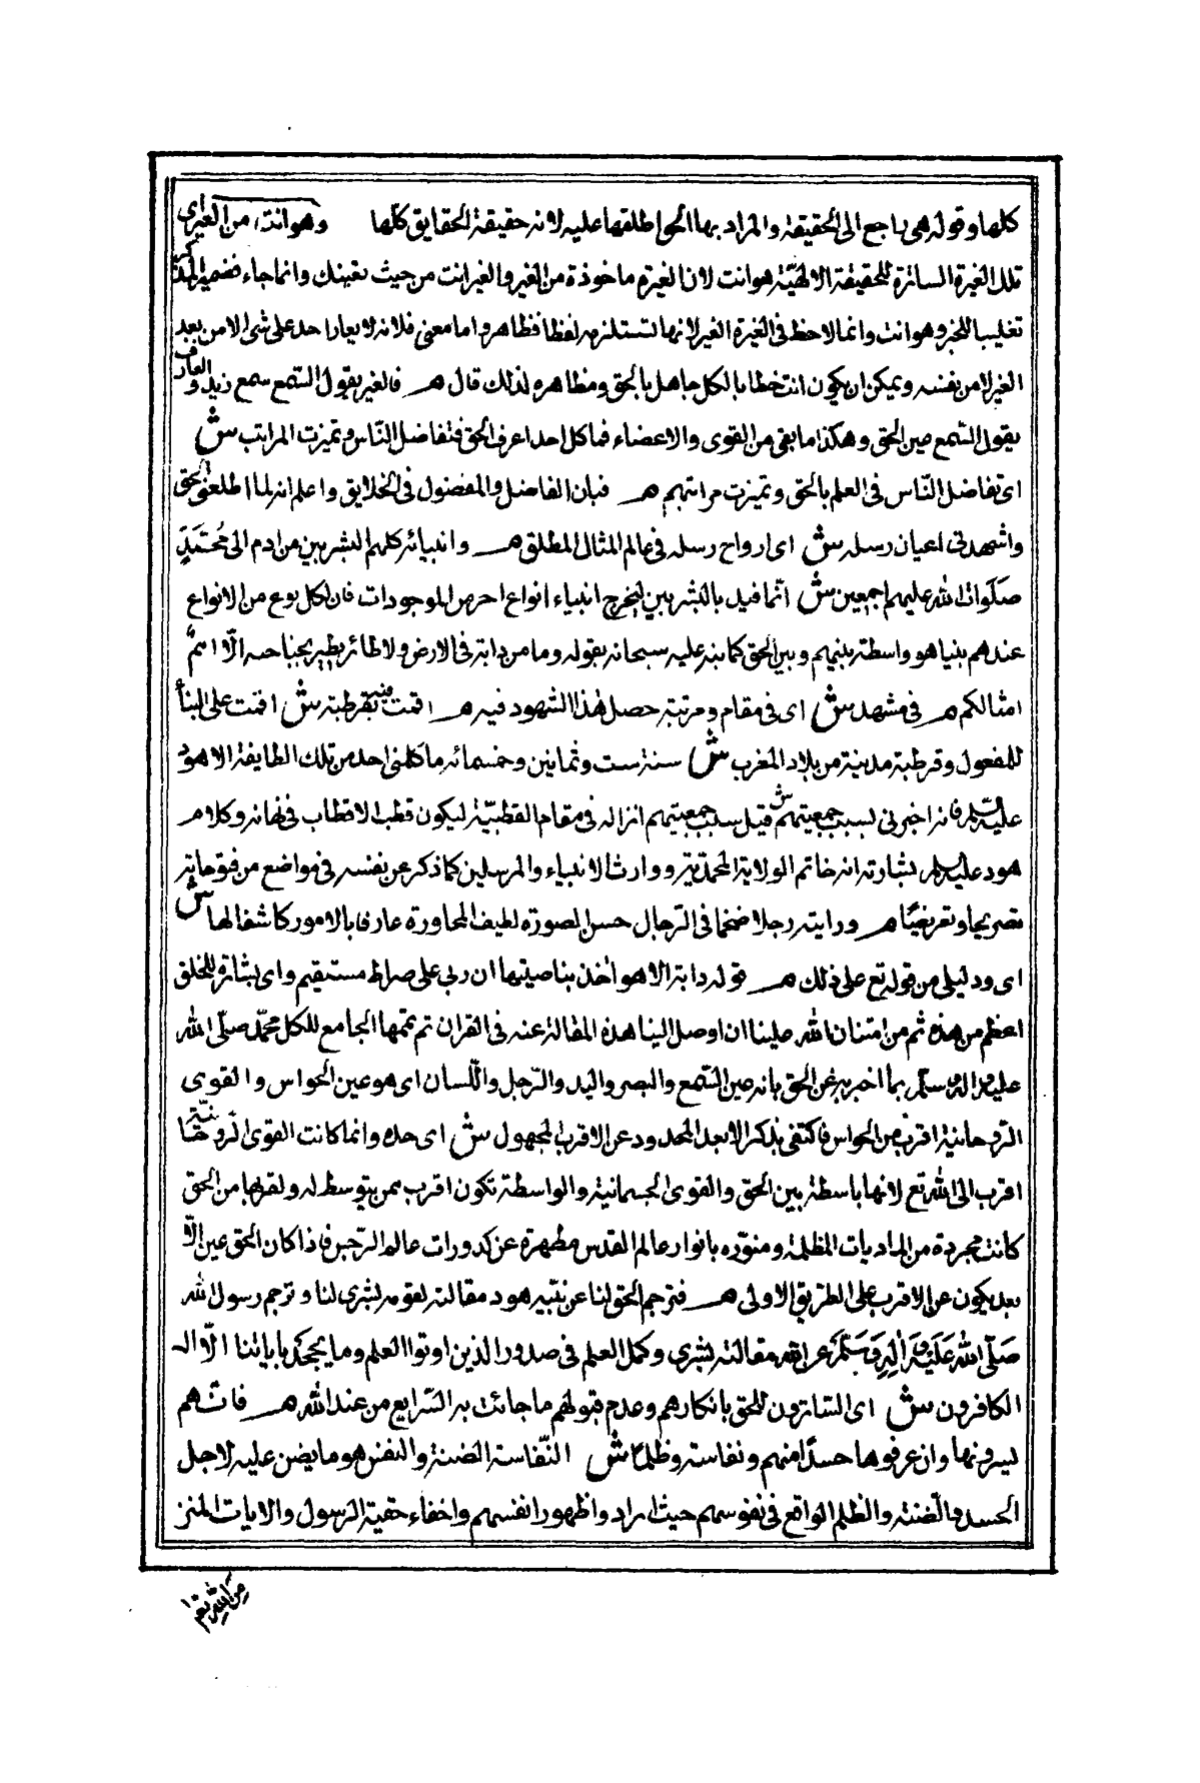 كلها وقوله هى راجع الى الحقيقة والمراد بها الحق اطلقها عليه لانه حقيقة الحقايق كلها وهو انت من الغير اى
تلك الغيرة الساترة للحقيقة الالهيّة هو انت لان الغيرة ماخوذة من الغير والغير انت من حيث تعينك وانما جاء فضمير المذكر
تغليبا للخبر وهو انت وانما لاحظ فى الغيرة الغير لانها تستلزمه لفظا فظاهر واما معنى فلانه لا يغار احد على شئ الا من بعد
الغير لا من نفسه ويمكن ان يكون انت خطابا لكل جاهل بالحق ومظاهره لذلك قال هـ فالغير يقول السّمع سمع زيد والعارف
يقول السّمع عين الحق وهكذا ما بقى من القوى والاعضاء فما كل احد اعرف الحق فتفاضل النّاس وتميزت المراتب ش
اى تفاضل النّاس فى العلم بالحق وتميزت مراتبهم هـ فبان الفاضل والمفضول فى الخلايق واعلم انه لما اطلعنى الحق
واشهدنى اعيان رسله ش اى ارواح رسله فى عالم المثالى المطلق هـ وانبيائه كلهم البشريين من ادم الى مُحَمَّدٍ
صَلَوات الله عليهم اجمعين ش انّما قيد بالبشريين ليخرج انبياء انواع اخر من الموجودات فان لكل نوع من الانواع
عندهم نبيا هو واسطة بينهم وبين الحق كما نبه عليه سبحانه بقوله وما من دابة فى الارض ولا طائر يطير بجناحيه الّا اممٌ
امثالكم هـ فى مشهد ش اى فى مقام ومرتبة حصل هذا الشهود فيه هـ اقمت فيه بقرطبة ش اقمت على البنأ
للمفعول وقرطبة مدينة من بلاد المغرب ش سنة ست وثمانين وخمسمائه ما كلمنى احد من تلك الطايفة الا هود
عليه السّلم فانه اخبرنى لسبب جمعيتهم ش قيل سبب جمعيتهم انزاله فى مقام القطبيّة ليكون قطب الاقطاب فى زمانه وكلام
هود عليه السلم بشارته انه خاتم الولاية المحمّديّة ووارث الانبياء والمرسلين كما ذكر عن نفسه فى مواضع من فتوحاته
تصريحا وتعريضًا هـ ورايته رجلا ضخما فى الرّجال حسن الصورة لطيف المحاورة عارفا بالامور كاشفا لها ش
اى ودليلى من قوله تع على ذلك هـ قوله دابة الا هو اٰخذ بناصيتها ان ربى على صراط مستقيم واى بشارة للخلق
اعظم من هذه ثم من امتنان الله علينا ان اوصل الينا هذه المقالة عنه فى القران ثم تممها الجامع للكل محمّد صلّى الله
عليه واله وسلّم بما اخبر به عن الحق بانه عين السّمع والبصر واليد والرّجل واللّسان اى هو عين الحواس والقوى
الرّوحانية اقرب من الحواس فاكتفى بذكر الابعد المحدود عن الاقرب المجهول ش اى حده وانما كانت القوى الرّوحانيّة
اقرب الى الله تع لانها باسطة بين الحق والقوى الجسمانية والواسطة تكون اقرب ممن يتوسط له ولقربها من الحق
كانت مجردة من الماديات المظلمة ومنوّره بانوار عالم القدس مطهرة عن كدورات عالم الرّجس فاذا كان الحق عين الا
بعد يكون عن الاقرب على الطريق الاولى هـ فترجم الحق لنا عن نبيه هود مقالته لقومه بشرى لنا وترجم رسول الله
صَلّى الله عَلَيْهِ وَاٰلِهِ وَسَلَّمَ عن الله مقالته بشرى وكمل العلم فى صدور الذين اوتوا العلم وما يجحد باياتنا الّا
الكافرون ش اى السّاترون للحق بانكارهم وعدم قبولهم ما جائت به الشرايع من عند الله هـ فانّهم
يسرونها وان عرفوها حسدًا منهم ونفاسة وظلما ش النّفاسة الضنة والنفس هو ما يضن عليه لاجل
الحسد فالضنة والظلم الواقع فى نفوسهم حيث ارادوا ظهور انفسهم واخفاء حقية الرّسول والايات المنز
من الله تعم